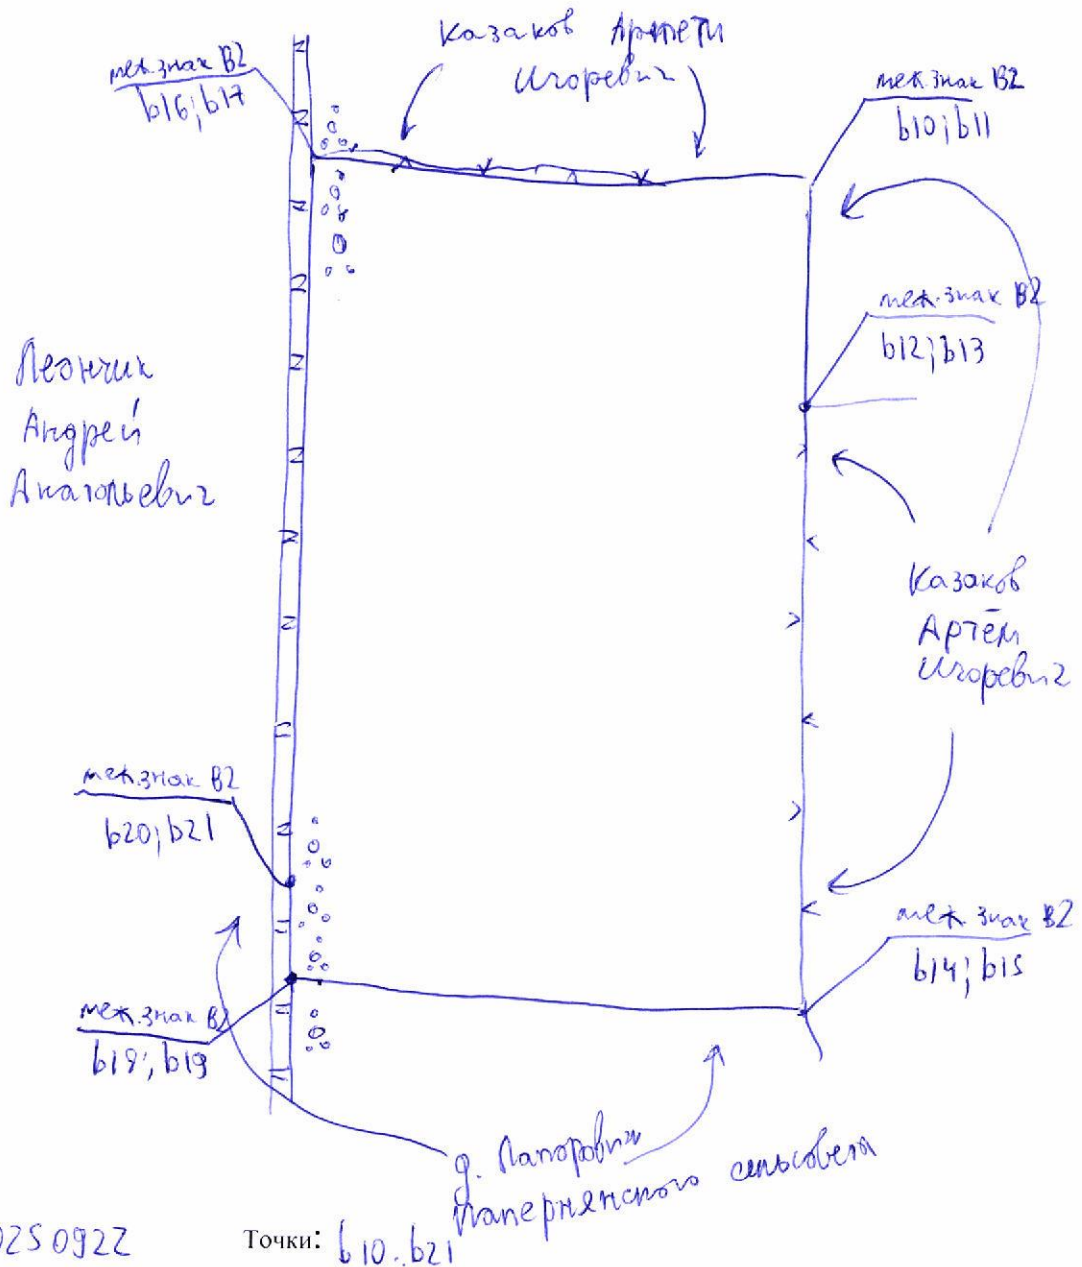 Казаков Артети
Игоревич
меж.знак В2
b16;b17
меж.знак В2
b10;b11
меж.знак В2
b12;b13
Леончик
Андрей
Анатольевич
Казаков
Артём
Игоревич
меж.знак В2
b20;b21
меж знак В2
b14;b15
меж.знак В2
b18;b19
д. Лапоровичи
Папернянского сельсовета
0250922
Точки: b10.b21